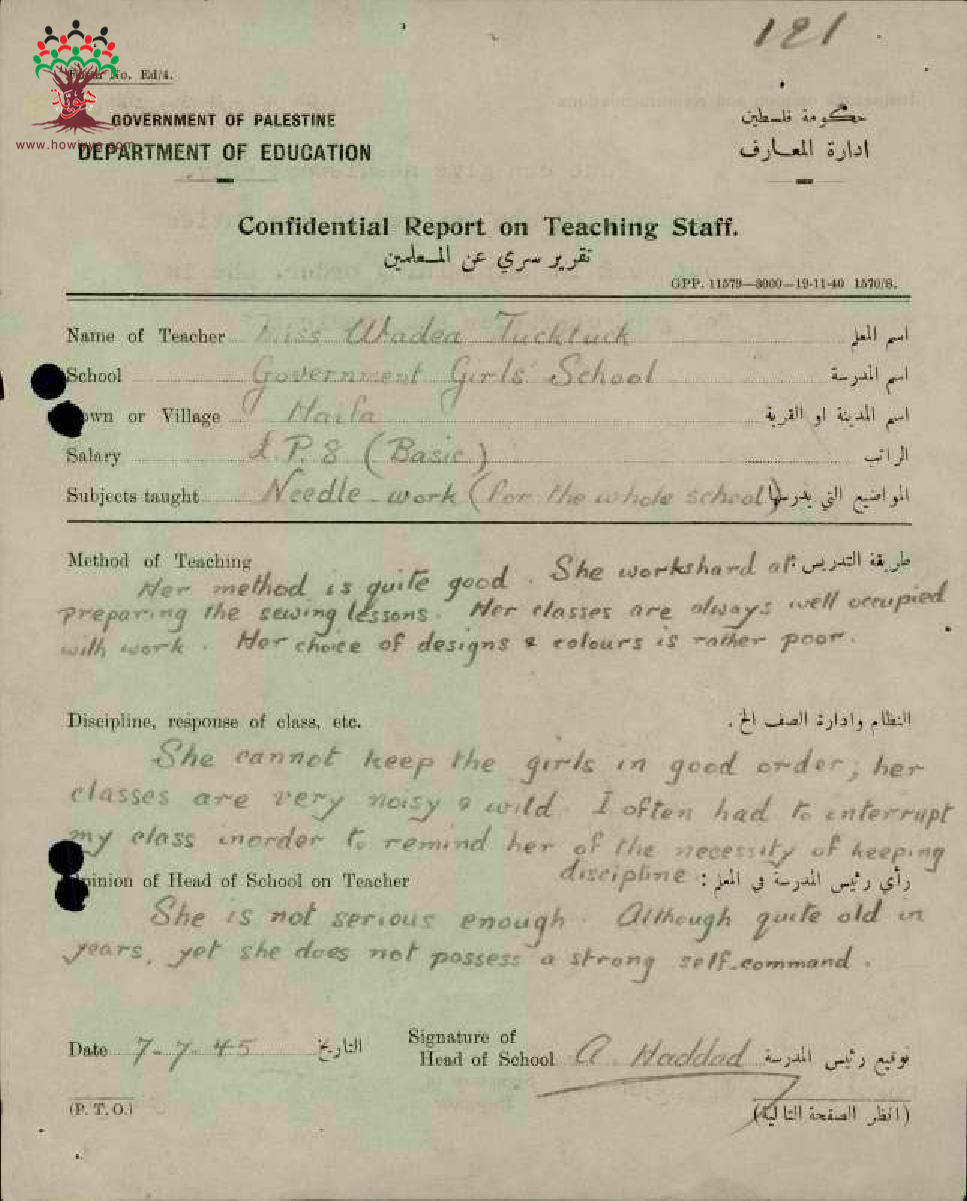 121
Form No. Ed/4.
حوية
www.howiyya.com
GOVERNMENT OF PALESTINE
حكومة فلسطين
DEPARTMENT OF EDUCATION
ادارة المعارف
Confidential Report on Teaching Staff.
تقرير سري عن المعلمين
GPP. 11579—3000—19-11-40 1570/S.
Name of Teacher Miss Wadea Tucktuck اسم المعلم
School Government Girls' School اسم المدرسة
Town or Village Haifa اسم المدينة او القرية
Salary £.P.8 (Basic) الراتب
Subjects taught Needle-work (for the whole school) المواضيع التي يدرسها
Method of Teaching طريقة التدريس:
Her method is quite good. She workshard at
preparing the sewing lessons. Her classes are always well occupied
with work. Her choice of designs & colours is rather poor.
Discipline, response of class, etc. النظام وادارة الصف الخ.
She cannot keep the girls in good order; her
classes are very noisy & wild. I often had to interrupt
my class inorder to remind her of the necessity of keeping
discipline
Opinion of Head of School on Teacher رأي رئيس المدرسة في المعلم:
She is not serious enough. Although quite old in
years, yet she does not possess a strong self-command.
Date 7-7-45 التاريخ
Signature of
Head of School A Haddad توقيع رئيس المدرسة
(P. T. O.) (انظر الصفحة التالية)